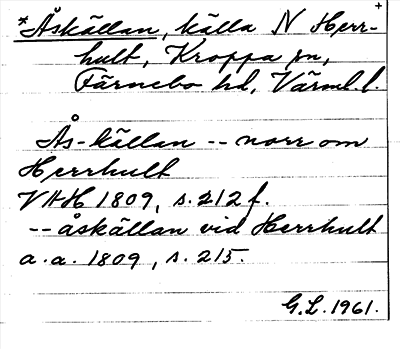 *Åskällan, källa N Herr- +
hult, Kroppa sn,
Färnebo hd, Värml. l.
Ås-källan -- norr om
Herrhult
VHH 1809, s. 212 f.
-- åskällan vid Herrhult
a. a. 1809, s. 215.
G.L. 1961.